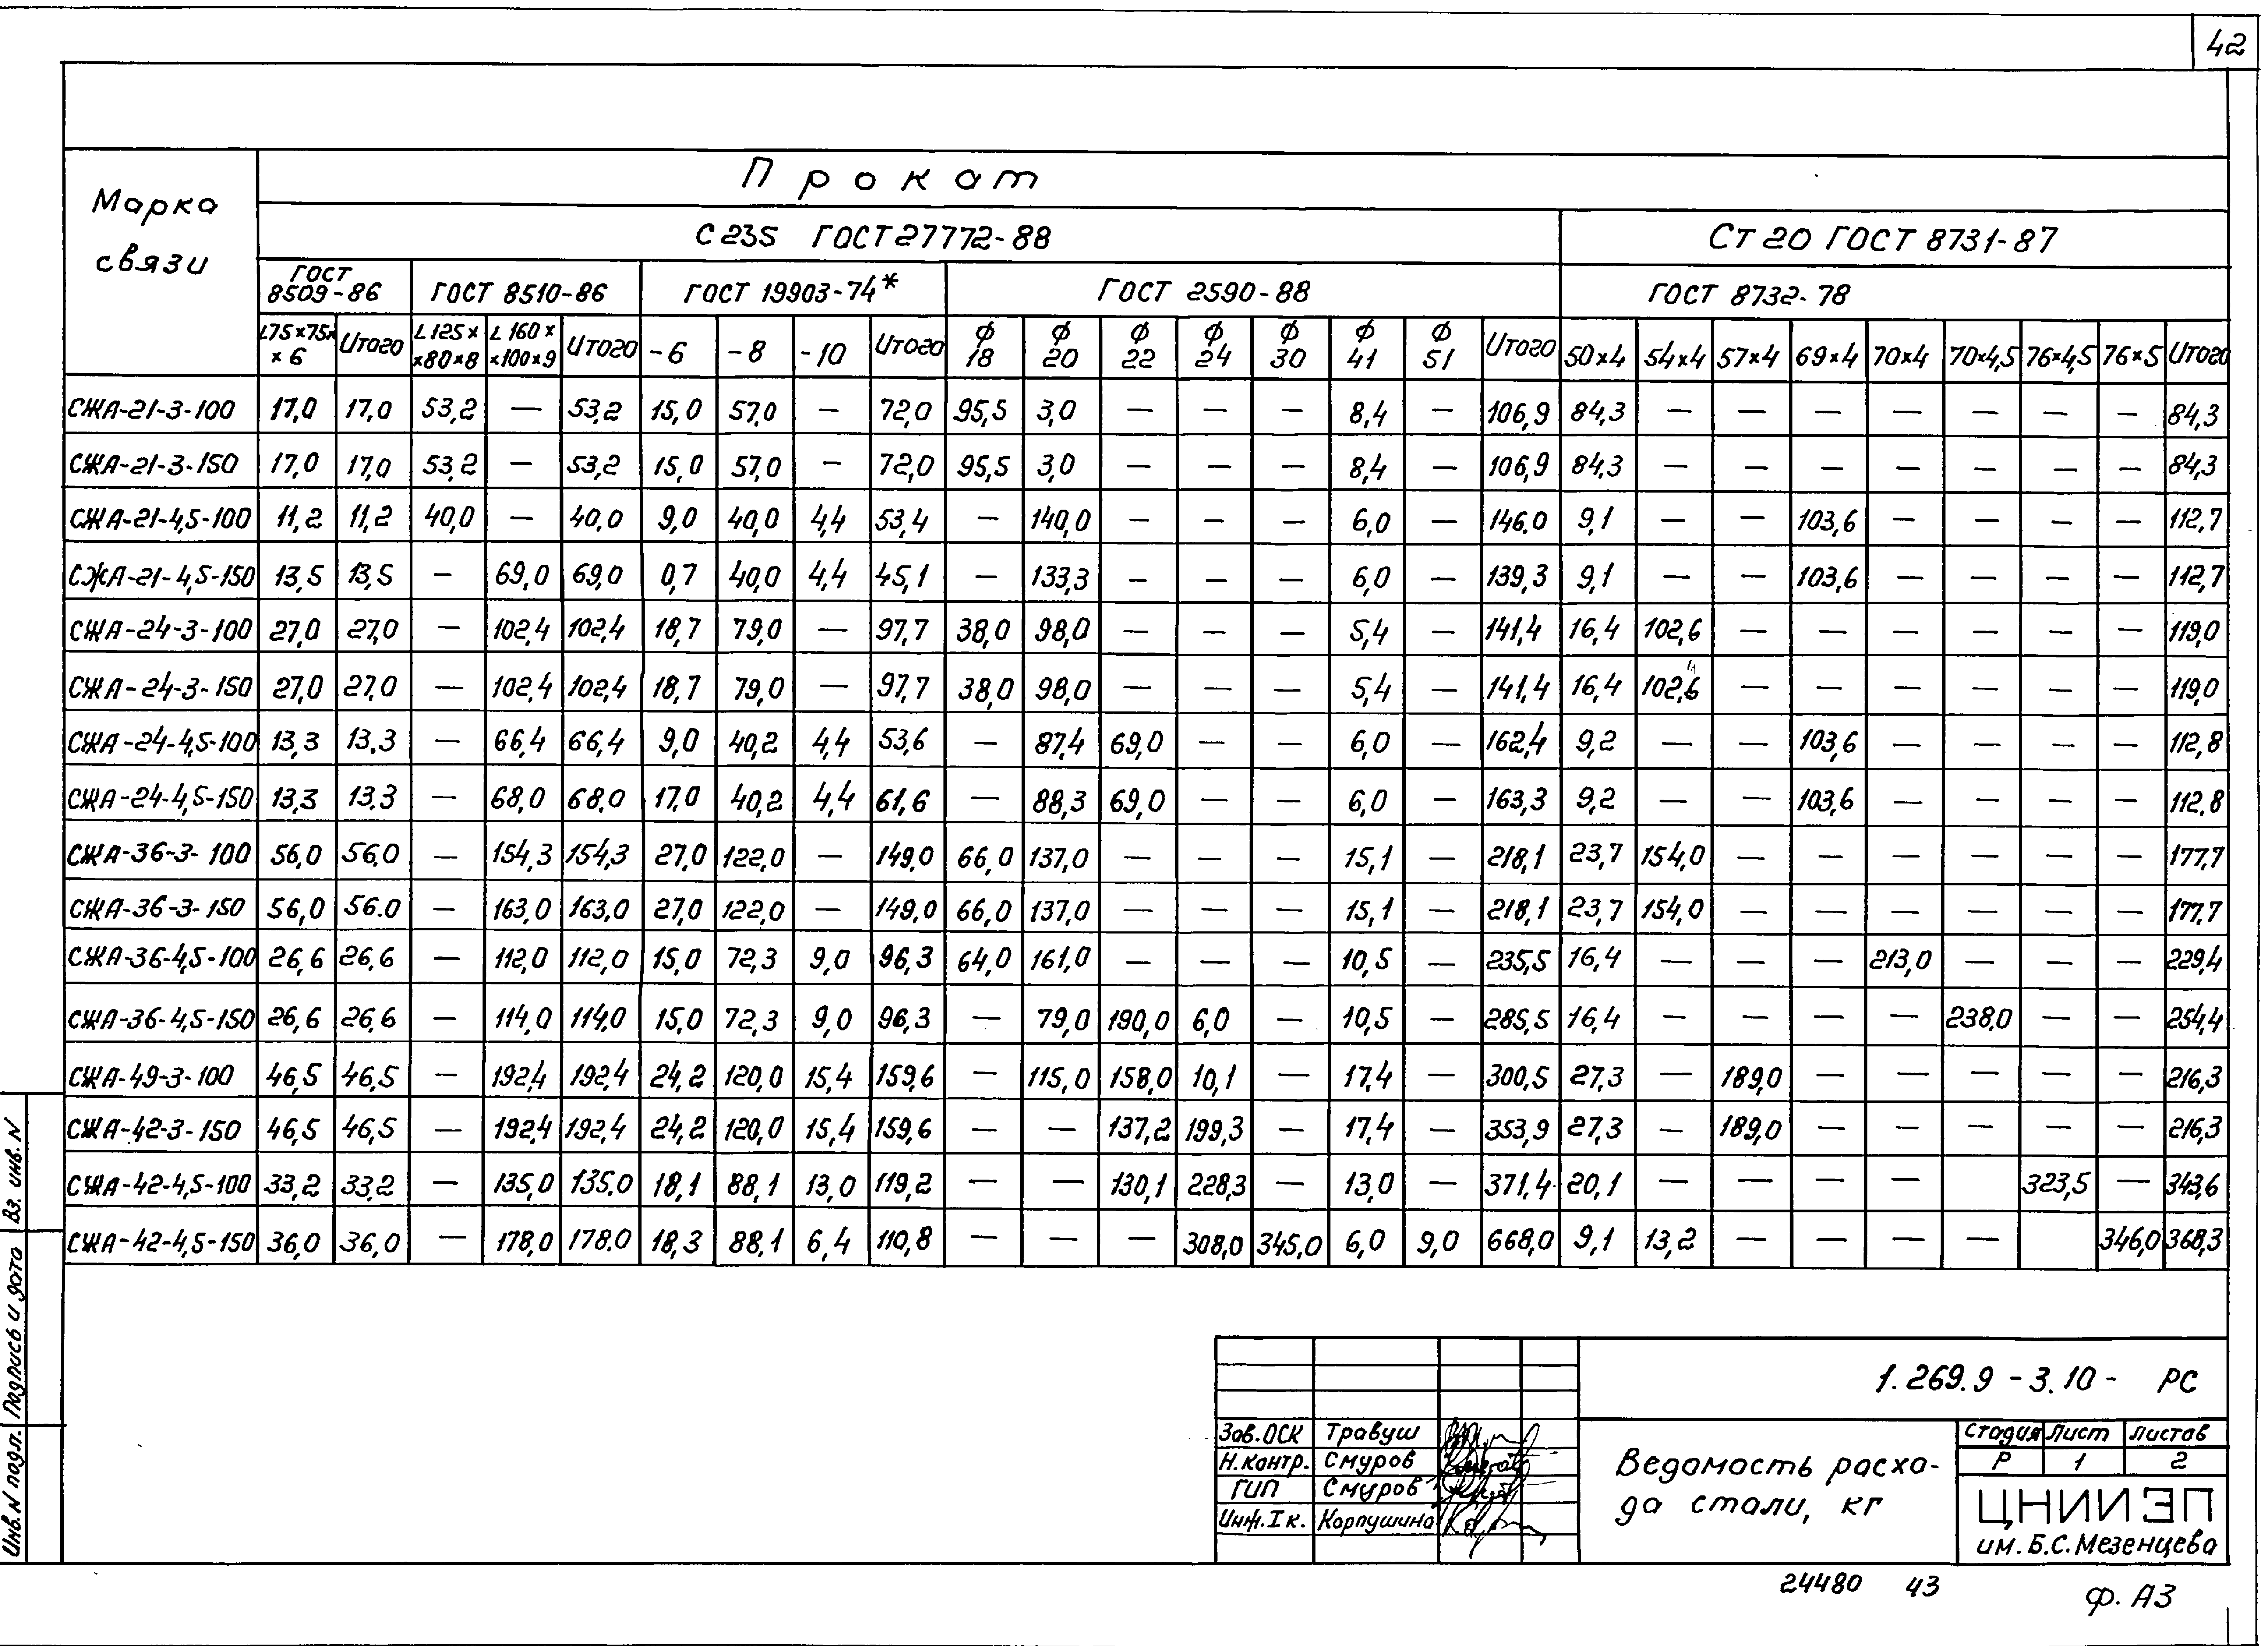 42
Прокат
Марка связи
С 235 ГОСТ 27772-88 Ст 20 ГОСТ 8731-87
ГОСТ 8509-86 ГОСТ 8510-86 ГОСТ 19903-74* ГОСТ 2590-88 ГОСТ 8732-78
L75×75××6 Итого L125××80×8 L160××100×9 Итого -6 -8 -10 Итого Ф18 Ф20 Ф22 Ф24 Ф30 Ф41 Ф51 Итого 50×4 54×4 57×4 69×4 70×4 70×4,5 76×4,5 76×5 Итого
СЖА-21-3-100 17,0 17,0 53,2 — 53,2 15,0 57,0 — 72,0 95,5 3,0 — — — — 8,4 — 106,9 84,3 — — — — — — — 84,3
СЖА-21-3-150 17,0 17,0 53,2 — 53,2 15,0 57,0 — 72,0 95,5 3,0 — — — 8,4 — 106,9 84,3 — — — — — — — 84,3
СЖА-21-4,5-100 11,2 11,2 40,0 — 40,0 9,0 40,0 4,4 53,4 — 140,0 — — — 6,0 — 146.0 9,1 — — 103,6 — — — — 112,7
СЖА-21-4,5-150 13,5 13,5 — 69,0 69,0 0,7 40,0 4,4 45,1 — 133,3 — — — 6,0 — 139,3 9,1 — — 103,6 — — — — 112,7
СЖА-24-3-100 27,0 27,0 — 102,4 102,4 18,7 79,0 — 97,7 38,0 98,0 — — — 5,4 — 141,4 16,4 102,6 — — — — — — 119,0
СЖА-24-3-150 27,0 27,0 — 102,4 102,4 18,7 79,0 — 97,7 38,0 98,0 — — — 5,4 — 141,4 16,4 102,6 — — — — — — 119,0
СЖА-24-4,5-100 13,3 13,3 — 66,4 66,4 9,0 40,2 4,4 53,6 — 87,4 69,0 — — 6,0 — 162,4 9,2 — — 103,6 — — — — 112,8
СЖА-24-4,5-150 13,3 13,3 — 68,0 68,0 17,0 40,2 4,4 61,6 — 88,3 69,0 — — 6,0 — 163,3 9,2 — — 103,6 — — — — 112,8
СЖА-36-3-100 56,0 56,0 — 154,3 154,3 27,0 122,0 — 149,0 66,0 137,0 — — — 15,1 — 218,1 23,7 154,0 — — — — — — 177,7
СЖА-36-3-150 56,0 56.0 — 163,0 163,0 27,0 122,0 — 149,0 66,0 137,0 — — — 15,1 — 218,1 23,7 154,0 — — — — — — 177,7
СЖА-36-4,5-100 26,6 26,6 — 112,0 112,0 15,0 72,3 9,0 96,3 64,0 161,0 — — — 10,5 — 235,5 16,4 — — — 213,0 — — — 229,4
СЖА-36-4,5-150 26,6 26,6 — 114,0 114,0 15,0 72,3 9,0 96,3 — 79,0 190,0 6,0 — 10,5 — 285,5 16,4 — — — — 238,0 — — 254,4
СЖА-49-3-100 46,5 46,5 — 192,4 192,4 24,2 120,0 15,4 159,6 — 115,0 158,0 10,1 — 17,4 — 300,5 27,3 — 189,0 — — — — — 216,3
СЖА-42-3-150 46,5 46,5 — 192,4 192,4 24,2 120,0 15,4 159,6 — — 137,2 199,3 — 17,4 — 353,9 27,3 — 189,0 — — — — — 216,3
СЖА-42-4,5-100 33,2 33,2 — 135,0 135,0 18,1 88,1 13,0 119,2 — — 130,1 228,3 — 13,0 — 371,4 20,1 — — — — — 323,5 — 343,6
СЖА-42-4,5-150 36,0 36,0 — 178,0 178,0 18,3 88,1 6,4 110,8 — — — 308,0 345,0 6,0 9,0 668,0 9,1 13,2 — — — — 346,0 368,3
Инв. N подл. Подпись и дата Вз. инв. N
1.269.9 - 3.10 - РС
Зав. ОСК Травуш
Н. контр. Смуров
ГИП Смуров
Инж. I к. Карпушина
Ведомость расхо-
да стали, кг
Стадия Лист Листов
Р 1 2
ЦНИИЭП
им. Б.С. Мезенцева
24480 43
Ф. А3